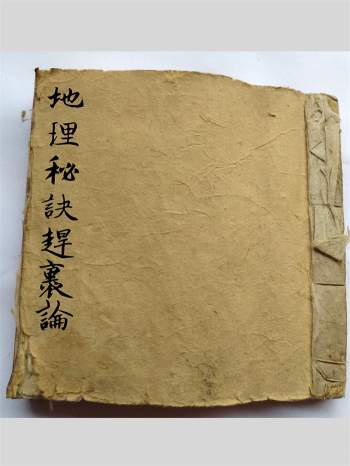 地理秘訣趕裹論